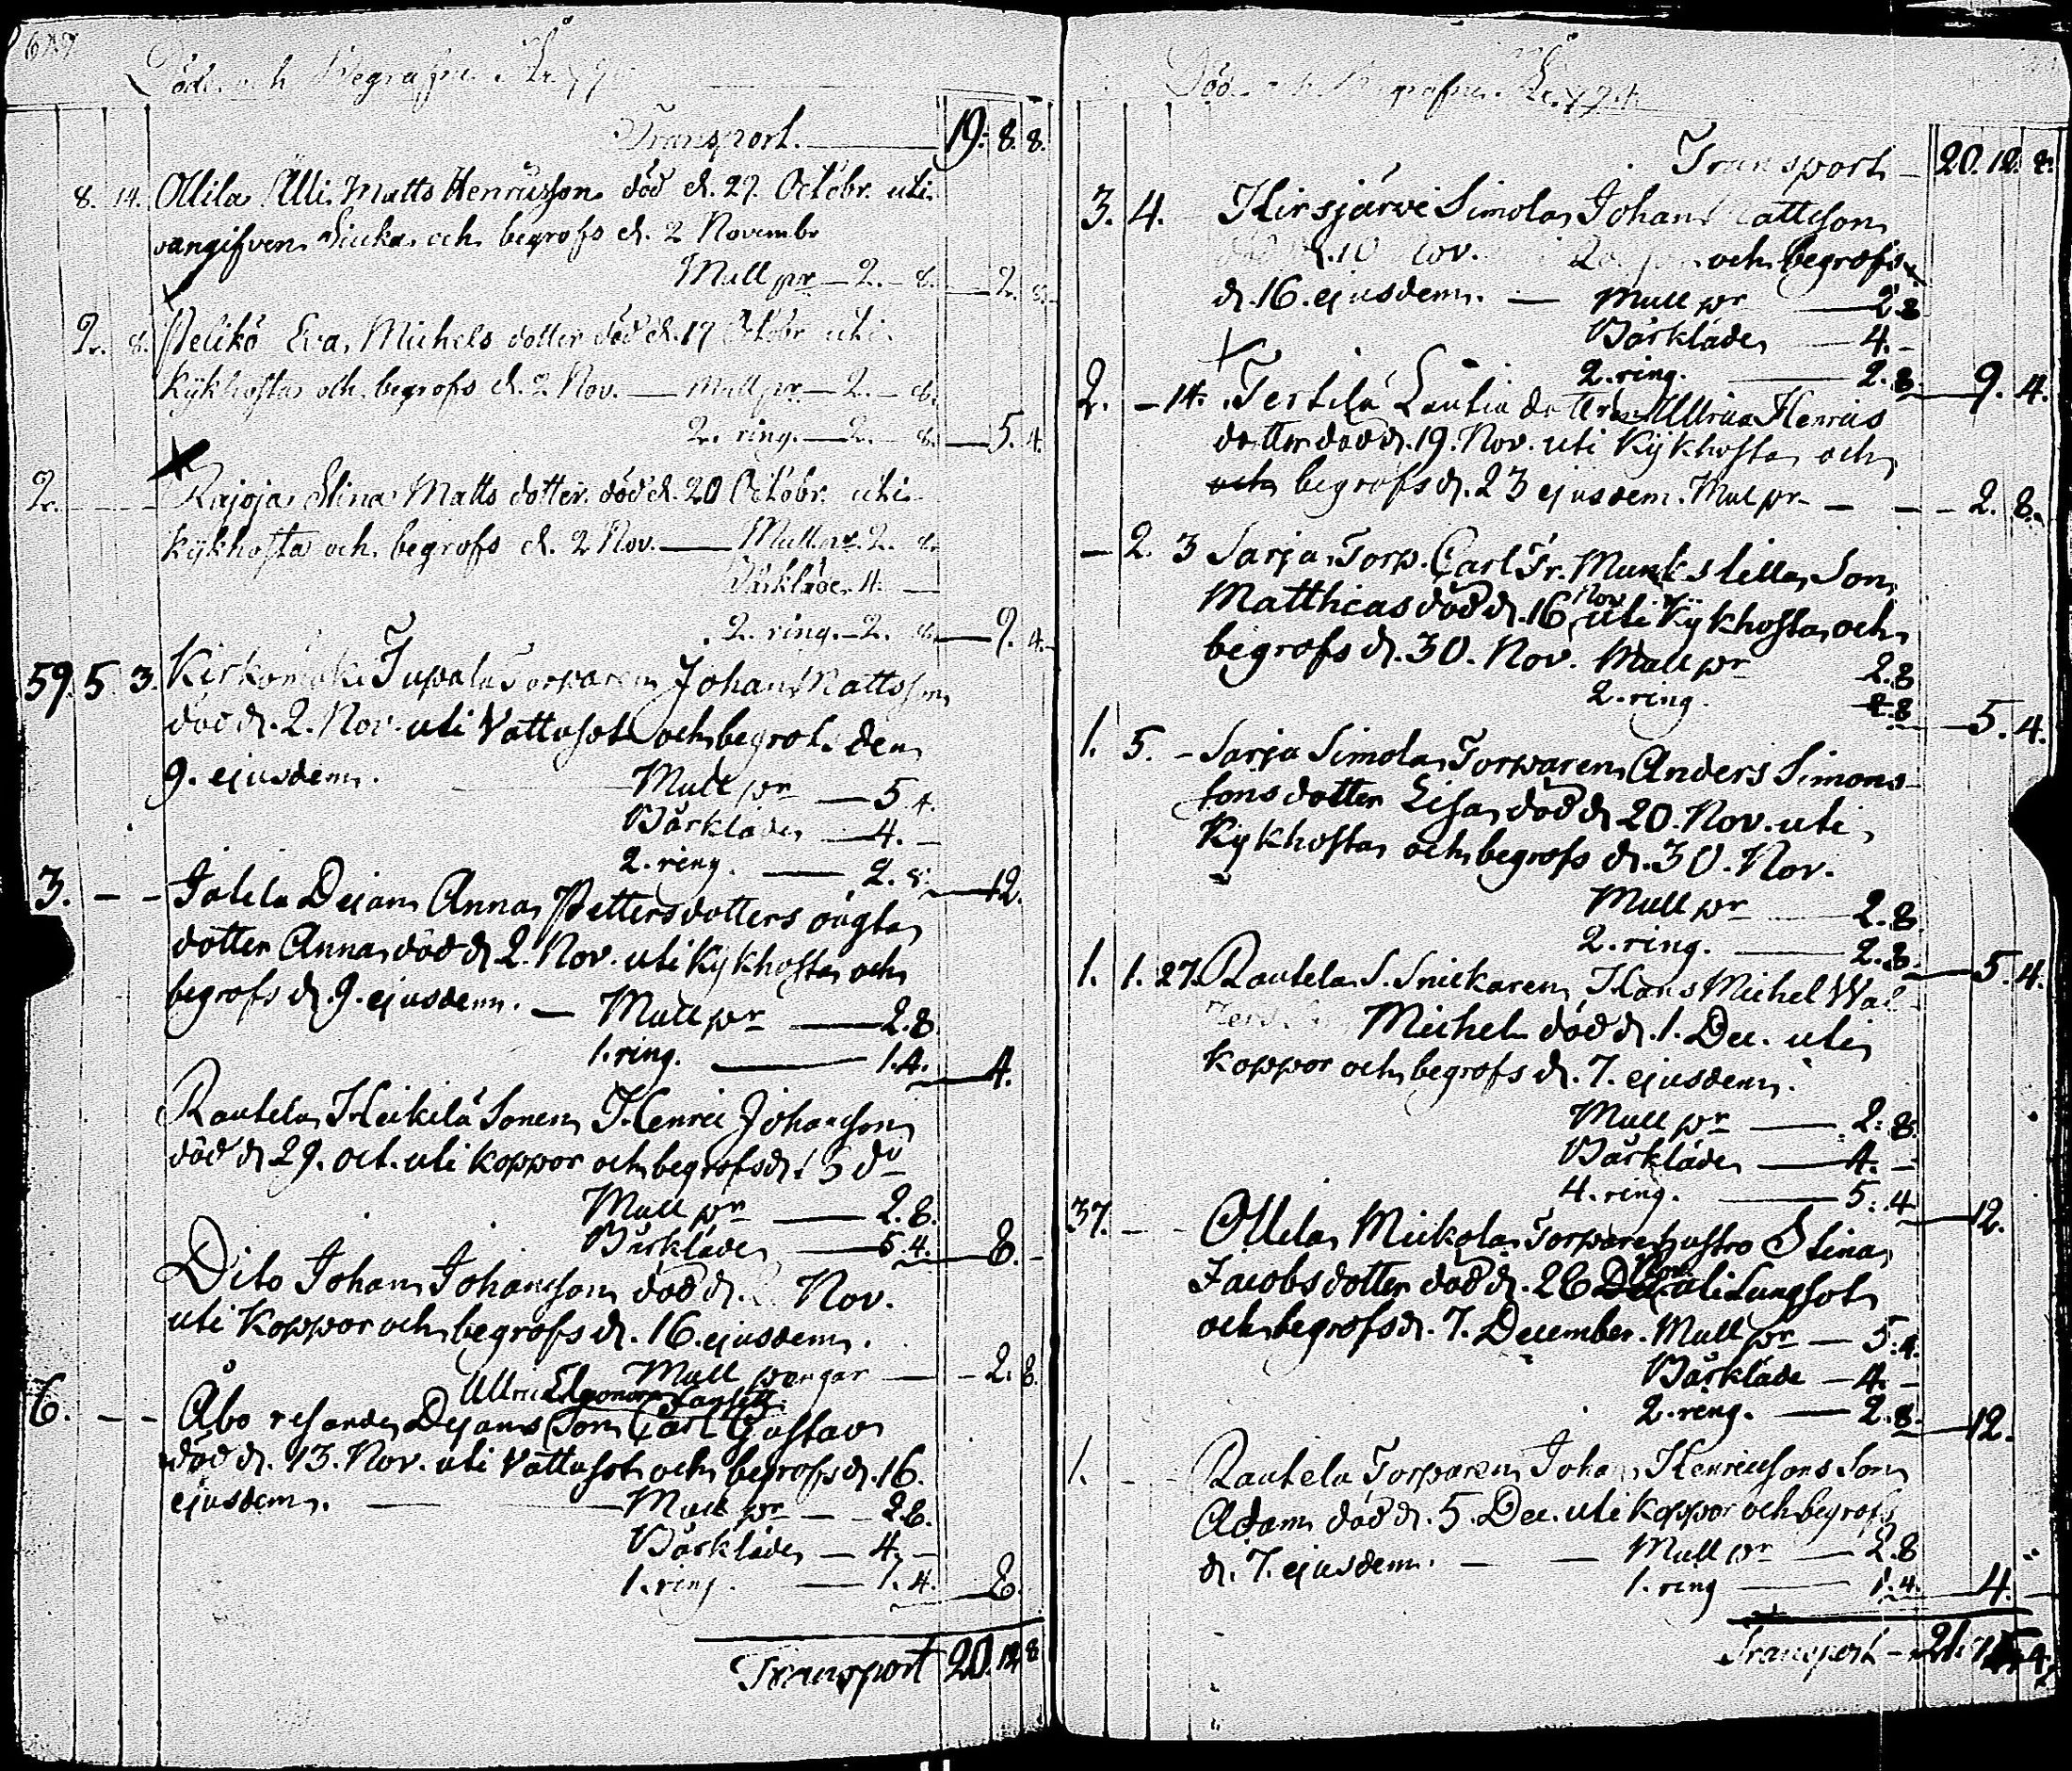 Döde och Begrafne År
Transport. 19. 8. 8.
8. 14. Ollila Alli Matts Henricsson död d. 27. Octobr. uti
oangifven Siuka och begrofs d. 2 Novembr
Mull pr 2. 8. 2. 8.
2. 8. Pelikö Eva Michels dotter död d. 17 Octobr uti
Kykhosta och begrofs d. 2 Nov. Mull pr 2. 8.
2. ring. 2. 8. 5. 4.
2. Rajoja Stina Matts dotter död d. 20 Octobr. uti
Kykhosta och begrofs d. 2 Nov. Mull pr. 2. 8.
Bårkläde 4.
2. ring. 2. 8. 9. 4.
59. 5 3. Kirkomäki Tupala Torparen Johan Mattsson
död d. 2. Nov. uti Vattusot och begrof. den
9. ejusdem. Mull pr 5. 4.
Bårkläde 4.
2. ring. 2. 8. 12.
3. Dejan Anna Pettersdotters oägta
dotter Anna död d. 2. Nov. uti Kykhosta och
begrofs d. 9. ejusdem. Mull pr 2. 8
1. ring. 1. 4. 4.
Rautela Heikilä Sonen Henric Johansson
död d. 29. oct. uti koppor och begrofs d.
Mull pr 2. 8.
Bårkläde 5. 4. 8.
Dito Johan Johansson död d. Nov.
uti Koppor och begrofs d. 16. ejusdem.
Mull pengar 2. 8.
Ullrica Eleonora
6. Åbo resande Dejans Son Carl Gustav
död d. 13. Nov. uti Vattusot och begrofs d. 16.
ejusdem. Mull pr 2. 8.
Bårkläde 4.
1. ring. 1. 4. 8.
Transport 20. 12. 8
Döde och Begrafne År
Transport 20. 12. 8.
3. 4. Hirsjärvi Simola Johan Mattsson
10 Nov. och begrofs
d. 16. ejusdem. Mull pr 2. 8
Bårkläde 4.
2. ring. 2. 8. 9. 4.
2. 14. Tertilä Lautia dottren Ullrica Henrics
dotter död d. 19. Nov. uti Kykhosta och
och begrofs d. 23 ejusdem. Mul pr 2. 8.
2. 3 Sarja Torp. Carl Fr. Munks lilla Son
Matthias död d. 16 Nov uti Kykhosta och
begrofs d. 30. Nov. Mull pr 2. 8
2. ring. 2. 8 5. 4.
1. 5. Sarja Simola Torparen Anders Simons
sons dotter Lisa död d. 20. Nov. uti
Kykhosta och begrofs d. 30. Nov.
Mull pr 2. 8.
2. ring. 2. 8. 5. 4.
1. 1. 27. Rautela S. Snickaren Hans Michel
Michel död d. 1. Dec. uti
koppor och begrofs d. 7. ejusdem.
Mull pr 2. 8.
Bårkläde 4.
4. ring. 5. 4 12.
37. Ollila Mickola Torpare hustro Stina
Jacobs dotter död d. 26 Nov. uti Lungsot
och begrofs d. 7. December. Mull pr 5. 4.
Bårkläde 4.
2. ring. 2. 8. 12.
1. Rautela Torparen Johan Henricsons Son
Adam död d. 5. Dec. uti Koppor och begrofs
d. 7. ejusdem. Mull pr 2. 8
1. ring 1. 4. 4.
Transport 21.